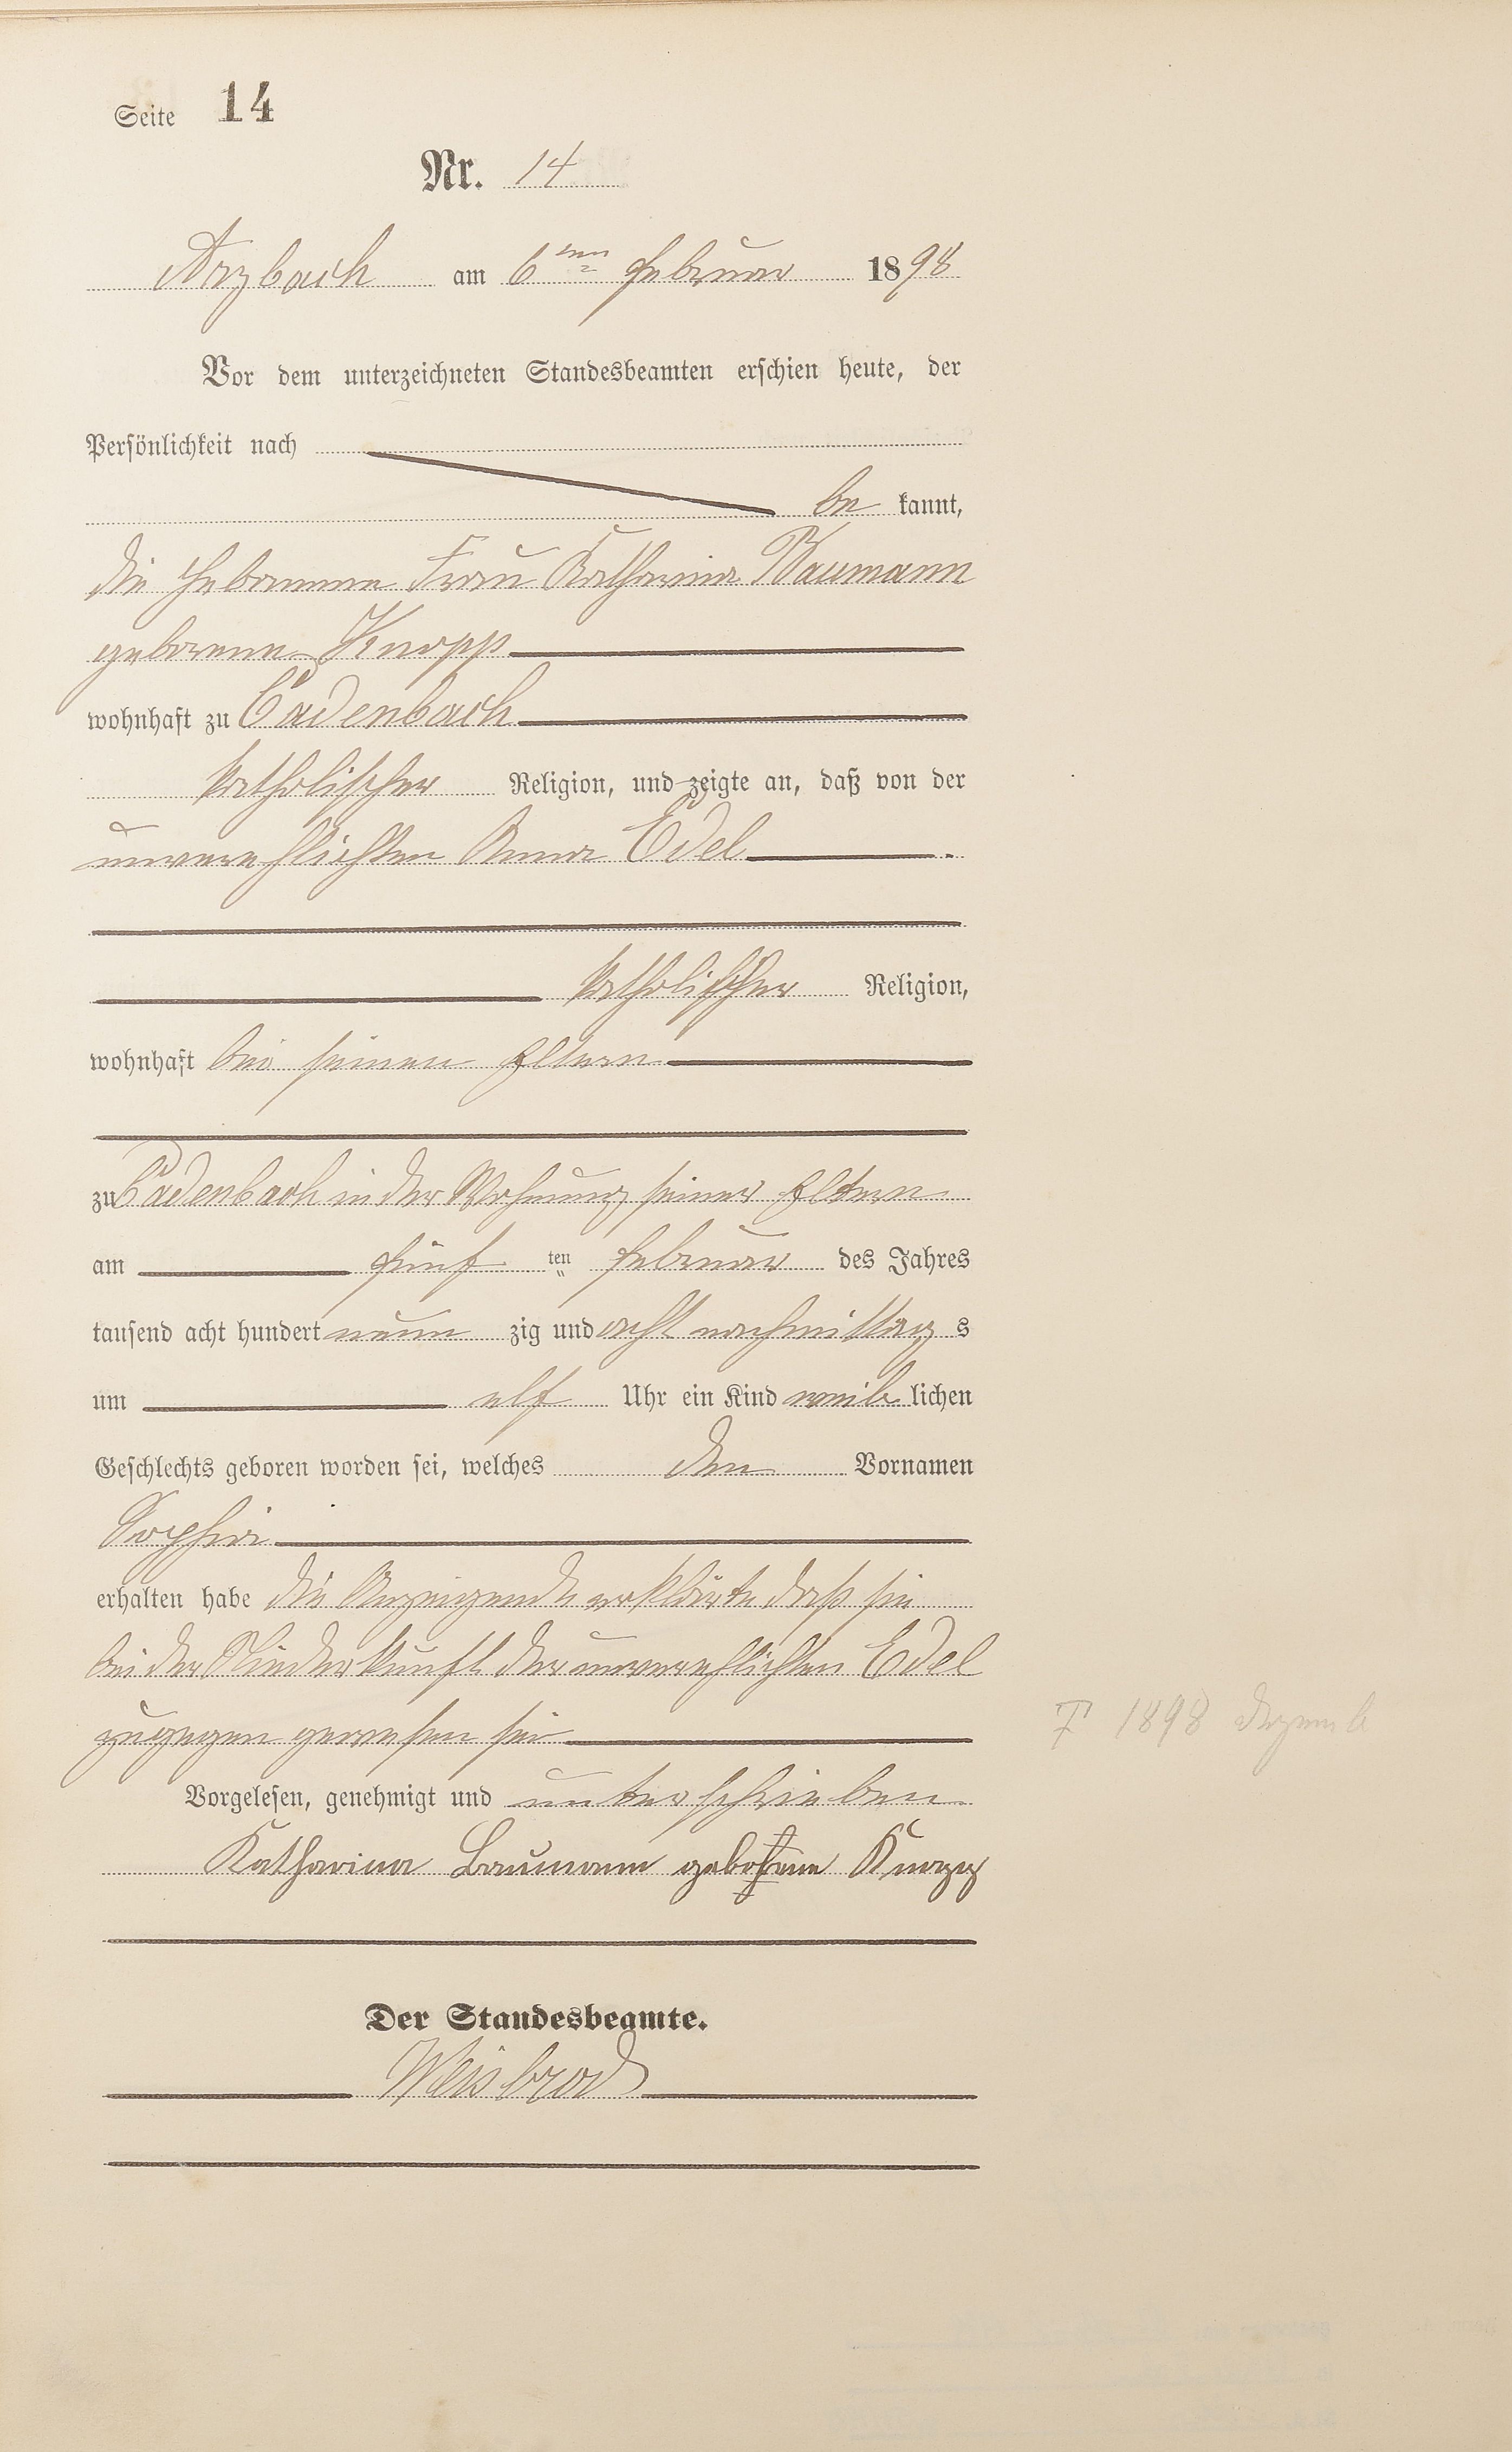 Seite 14
Nr. 14
Arzbach am 6ten Februar 1898
Vor dem unterzeichneten Standesbeamten erschien heute, der
Persönlichkeit nach
be kannt,
die Hebamme Frau Katharina Baumann
geborene Knopp
wohnhaft zu Cadenbach
katholischer Religion, und zeigte an, daß von der
unverehlichten Anna Edel
katholischer Religion,
wohnhaft bei seinen Eltern
zu Cadenbach in der Wohnung seiner Eltern
am fünf ten Februar des Jahres
tausend acht hundert neun zig und acht nachmittag s
um elf Uhr ein Kind weib lichen
Geschlechts geboren worden sei, welches den Vornamen
Sophia
erhalten habe die Anzeigende erklärte daß sie
bei der Niederkunft der unverehlichten Edel
zugegen gewesen sei
† 1898 Dezemb
Vorgelesen, genehmigt und unterschrieben
Katharina Baumann geborene Knopp
Der Standesbeamte.
Weisbrod